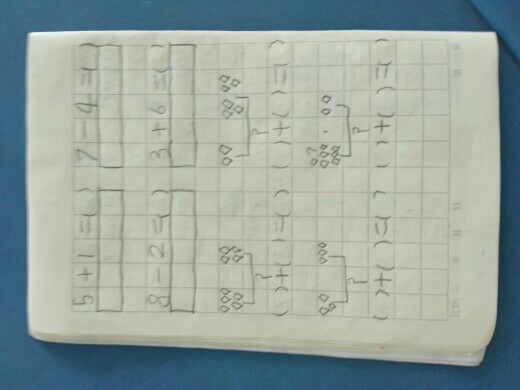 5 + 1 = ( ) 7 - 4 = ( )
8 - 2 = ( ) 3 + 6 = ( )
? ?
( ) + ( ) = ( ) ( ) + ( ) = ( )
? ?
( ) + ( ) = ( ) ( ) + ( ) = ( )